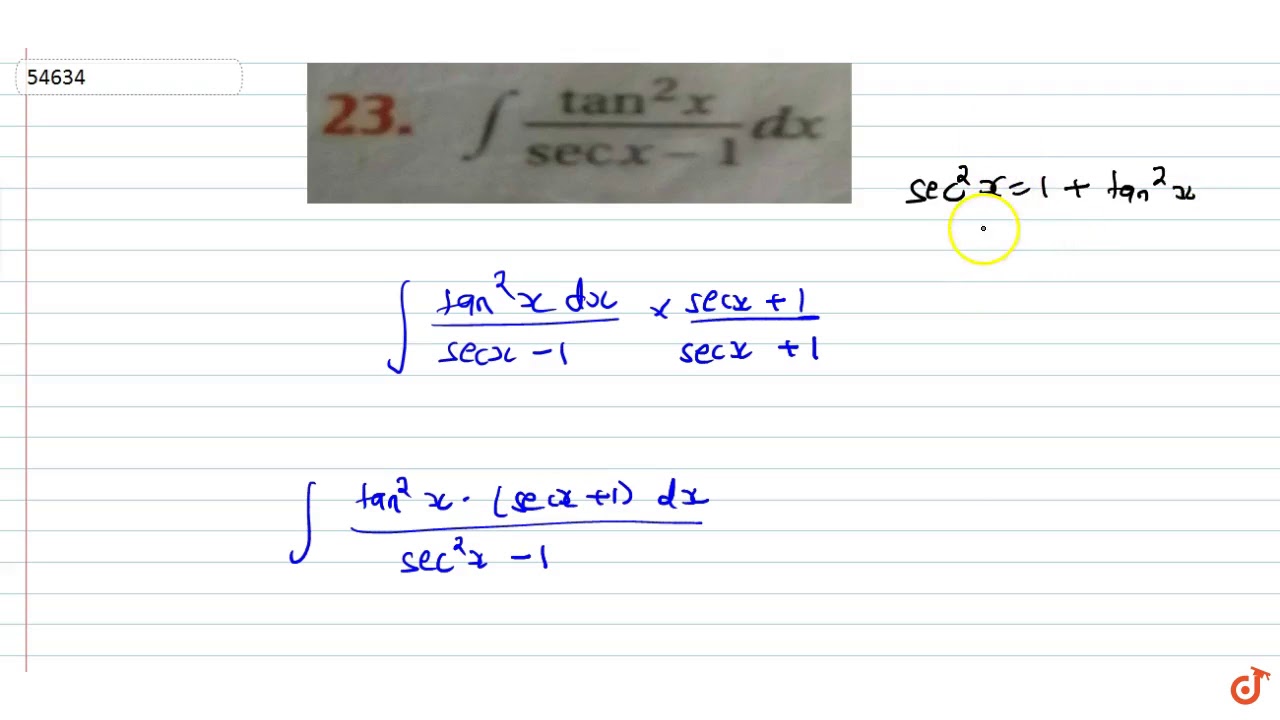 54634
23. ∫ tan²x / (sec x − 1) dx
sec²x = 1 + tan²x
∫ tan²x dx / (secx − 1) × (secx + 1) / (secx + 1)
∫ tan²x · (secx + 1) dx / (sec²x − 1)